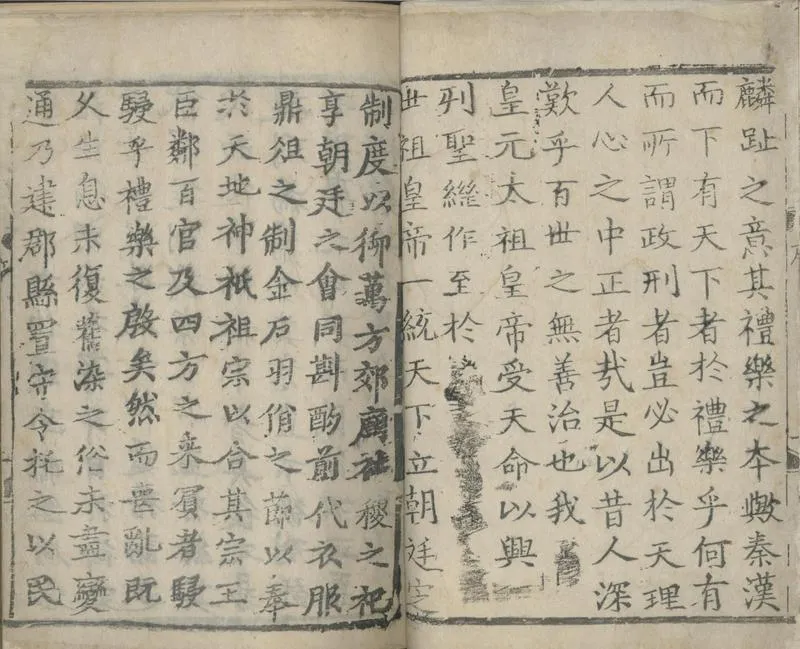 麟趾之意其禮樂之本歟秦漢
而下有天下者於禮樂乎何有
而所謂政刑者豈必出於天理
人心之中正者㢤是以昔人深
歎乎百世之無善治也我
皇元太祖皇帝受天命以興
列聖繼作至於
世祖皇帝一統天下立朝廷定
制度以御萬方郊廟社稷之祀
享朝廷之會同斟酌前代衣服
鼎俎之制金石羽佾之節以奉
扵天地神祇祖宗以合其宗王
臣鄰百官及四方之来賓者駸
駸乎禮樂之啟矣然而喪亂既
久生息未復舊染之俗未盡變
通乃建郡縣置守令托之以民